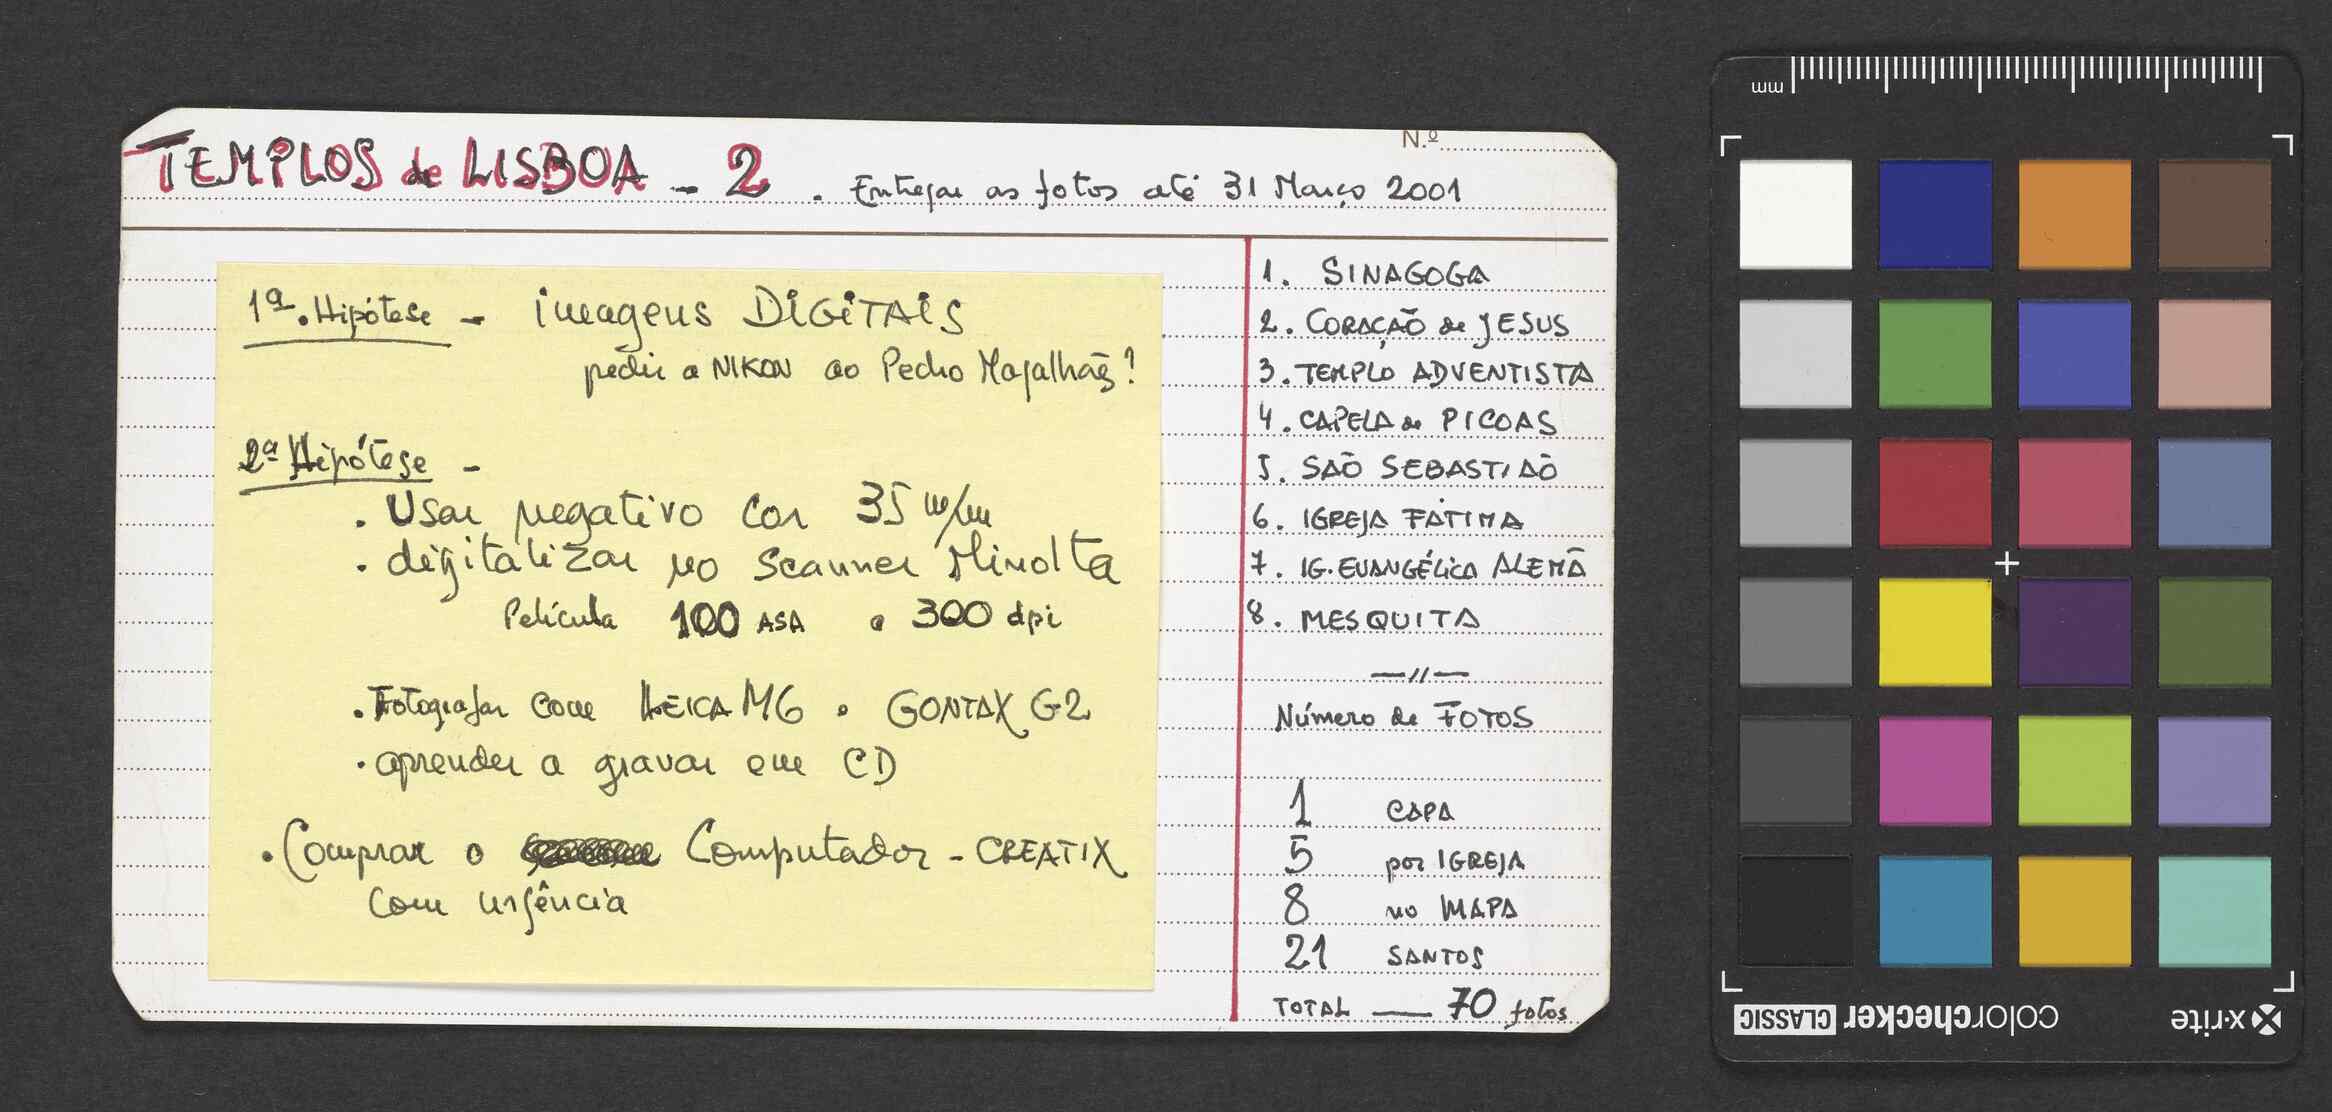 N.º
TEMPLOS de LISBOA - 2 . Entregar as fotos até 31 Março 2001
1ª. Hipótese - imagens DIGITAIS
pedir a NIKON ao Pedro Magalhães?
2ª Hipótese -
. Usar negativo cor 35 m/m
. digitalizar no Scanner Minolta
Película 100 ASA a 300 dpi
. Fotografar com LEICA M6 . CONTAX G2
. aprender a gravar em CD
. Comprar o Computador - CREATIX
com urgência
1. SINAGOGA
2. CORAÇÃO de JESUS
3. TEMPLO ADVENTISTA
4. CAPELA de PICOAS
5. SÃO SEBASTIÃO
6. IGREJA FÁTIMA
7. IG. EVANGÉLICA ALEMÃ
8. MESQUITA
—//—
Número de FOTOS
1 CAPA
5 por IGREJA
8 no MAPA
21 SANTOS
TOTAL — 70 fotos
mm
x-rite
colorchecker CLASSIC